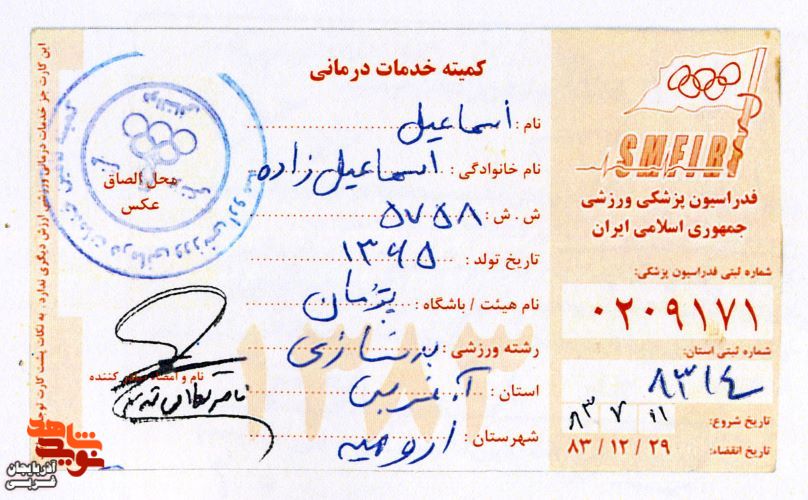 کمیته خدمات درمانی
نام : اسماعیل
نام خانوادگی : اسماعیل زاده
ش . ش : ۵۷۵۸
تاریخ تولد : ۱۳۶۵
نام هیئت / باشگاه :
رشته ورزشی : بدنسازی
استان : آ. غربی
شهرستان : ارومیه
۱۳۸۳
محل الصاق
عکس
نام و امضاء صادر کننده
SMFIR
فدراسیون پزشکی ورزشی
جمهوری اسلامی ایران
شماره ثبتی فدراسیون پزشکی:
۰۲۰۹۱۷۱
شماره ثبتی استان:
۸۳۱۴
تاریخ شروع: ۸۳ ۷ ۱۱
تاریخ انقضاء: ۸۳ / ۱۲ / ۲۹
این کارت جز خدمات درمانی ورزشی ارزش دیگری ندارد . به نکات پشت کارت توجه
نوید شاهد
آذربایجان
غربی